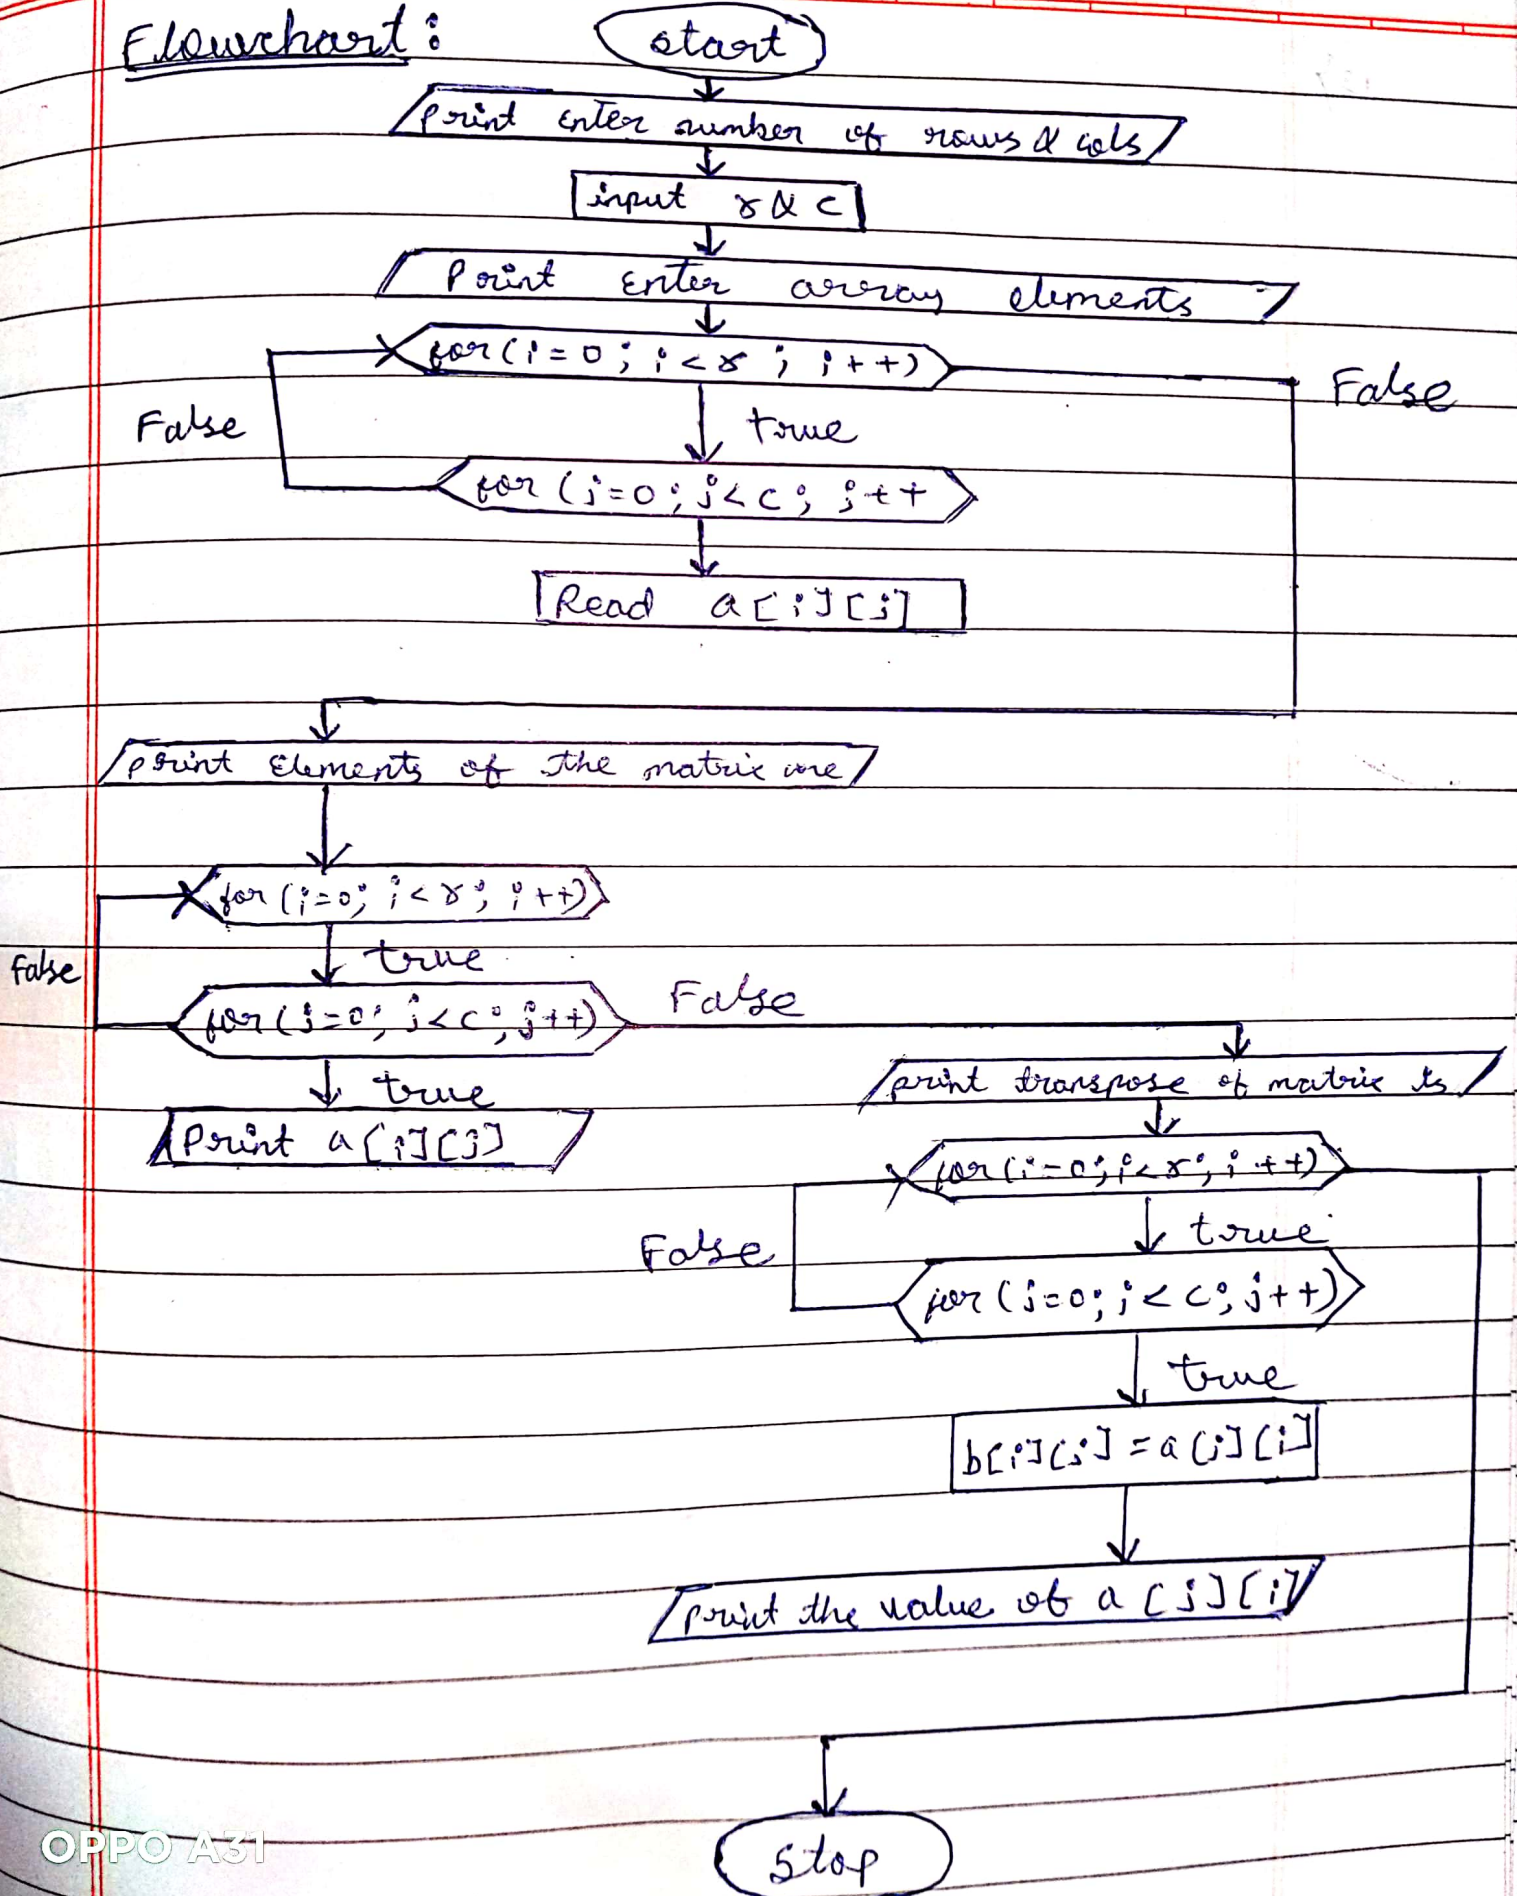 Flowchart:
start
Print enter number of rows & cols
input r & c
Print enter array elements
for(i=0; i<r; i++)
False
False
true
for (j=0; j<c; j++
Read a[i][j]
print Elements of the matrix are
for (i=0; i<r; i++)
false
true
for(j=0; j<c; j++)
False
true
Print a[i][j]
print transpose of matrix is
for(i=0; i<r; i++)
true
False
for(j=0; j<c; j++)
true
b[i][j] = a[j][i]
print the value of a[j][i]
Stop
OPPO A31